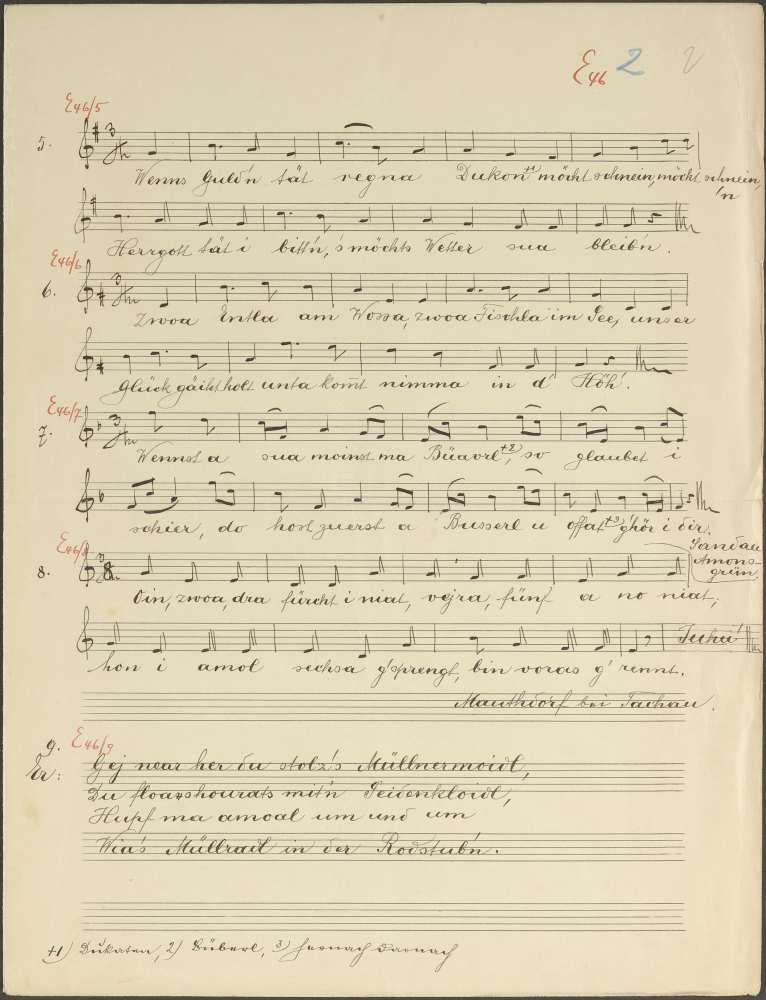 E46 2
E46/5
5.
Wenns Guld'n tät regna Dukon+1 möcht schnein, möcht schnein,
'n
Herrgott tät i bitt'n, 's möchts Wetter sua bleib'n.
E46/6
6.
Zwoa Entla am Wossa, zwoa Fischla im See, unser
Glück gäiht holt unta kom̄t nimma in d' Höh'.
E46/7
7.
Wennst a sua moinst ma Büaorl+2, so glaubst i
schier, do host zuerst a Busserl u offat+3 g'hör i dir.
Sandau
Amons-
grün
8.
Oin, zwoa, dra fürcht i niat, vejra, fünf a no niat,
hon i amol sechsa g'sprengt, bin voras g'rennt. Juhu!
Mauthdorf bei Tachau.
9. E46/9
Er: Gej near her du stolz's Müllnermoidl,
Du floashourats mit'n Seidenkloidl,
Hupf ma amoal um und um
Wia's Müllradl in der Rodstub'n.
+1) Dukaten, 2) Büberl, 3) hernach darnach